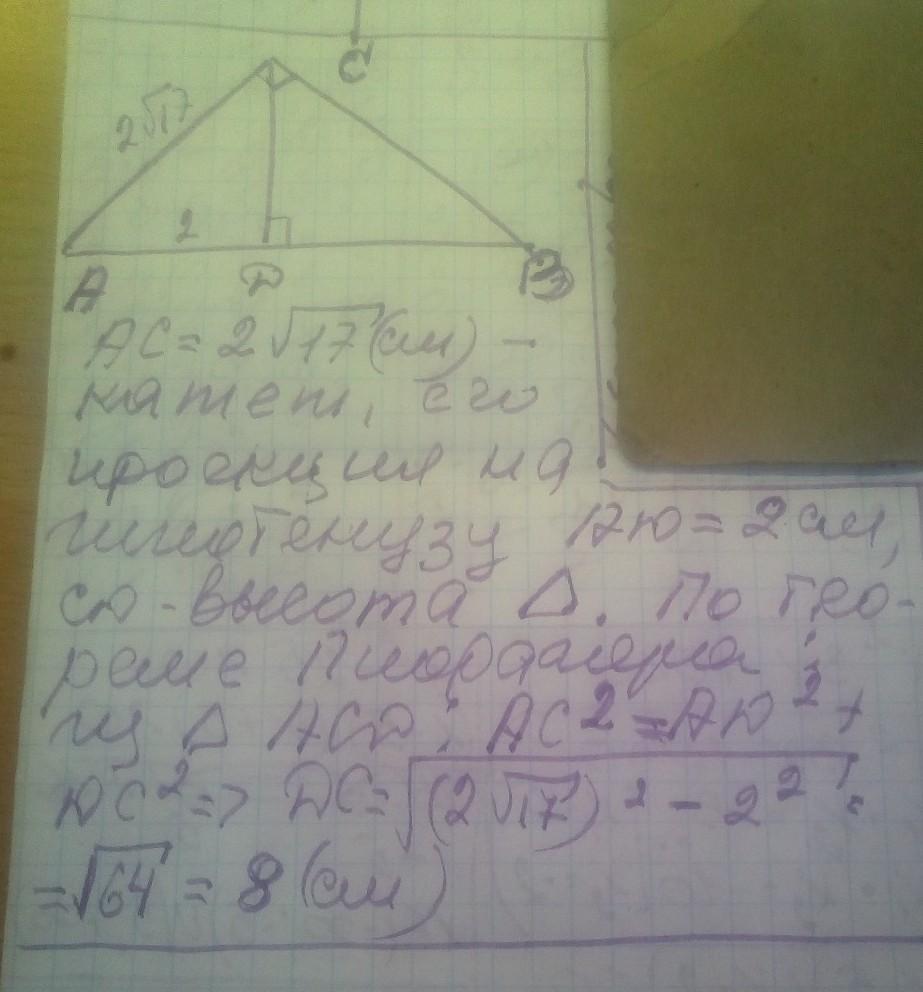 C
2√17
2
A D B
AC = 2√17 (см) –
катет, его
проекция на
гипотенузу AD = 2 см,
CD - высота Δ. По тео-
реме Пифагора
из Δ ACD: AC² = AD² +
DC² => DC = √(2√17)² - 2² =
= √64 = 8 (см)